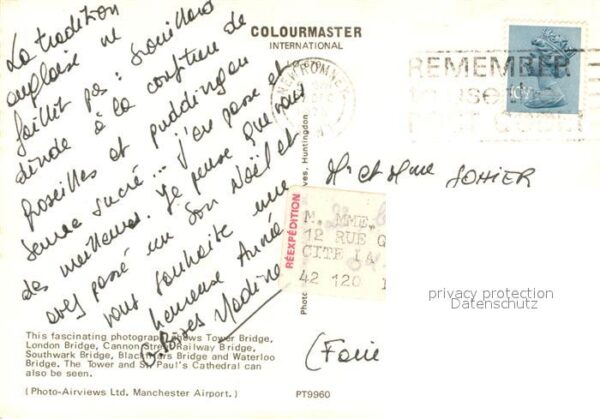 La tradition
anglaise ne
faillit pas : Brouillard
dinde à la confiture de
groseilles et pudding au
beurre sucré ... J'en passe et
des meilleures. Je pense que vous
avez passé un bon Noël et
vous souhaite une
heureuse Année
Bises Nadine
COLOURMASTER
INTERNATIONAL
NEW ROMNEY
REMEMBER
to use the
POST CODE
Mr et Mme SOHIER
RÉEXPÉDITION
M. MME.
12 RUE G
CITE LA
42 120
privacy protection
Datenschutz
(Foire
ves, Huntingdon.
Photo
This fascinating photograph shows Tower Bridge,
London Bridge, Cannon Street Railway Bridge,
Southwark Bridge, Blackfriars Bridge and Waterloo
Bridge. The Tower and St. Paul's Cathedral can
also be seen.
(Photo-Airviews Ltd. Manchester Airport.)
PT9960